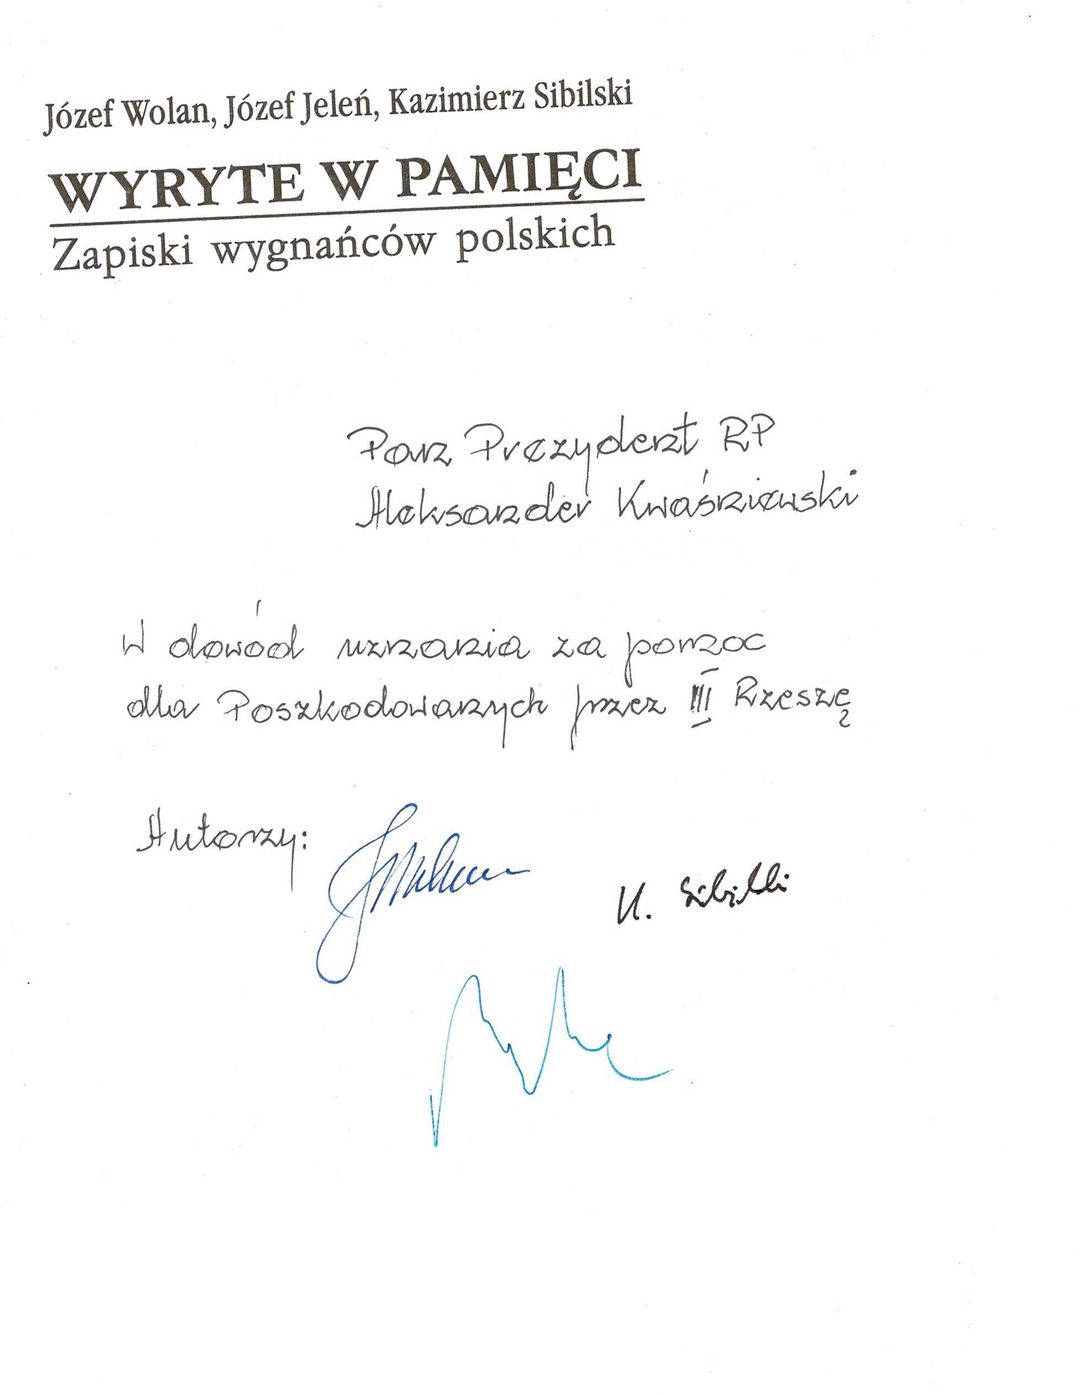 Józef Wolan, Józef Jeleń, Kazimierz Sibilski
WYRYTE W PAMIĘCI
Zapiski wygnańców polskich
Pan Prezydent RP
Aleksander Kwaśniewski
W dowód uznania za pomoc
dla Poszkodowanych przez III Rzeszę
Autorzy:
K. Sibilski